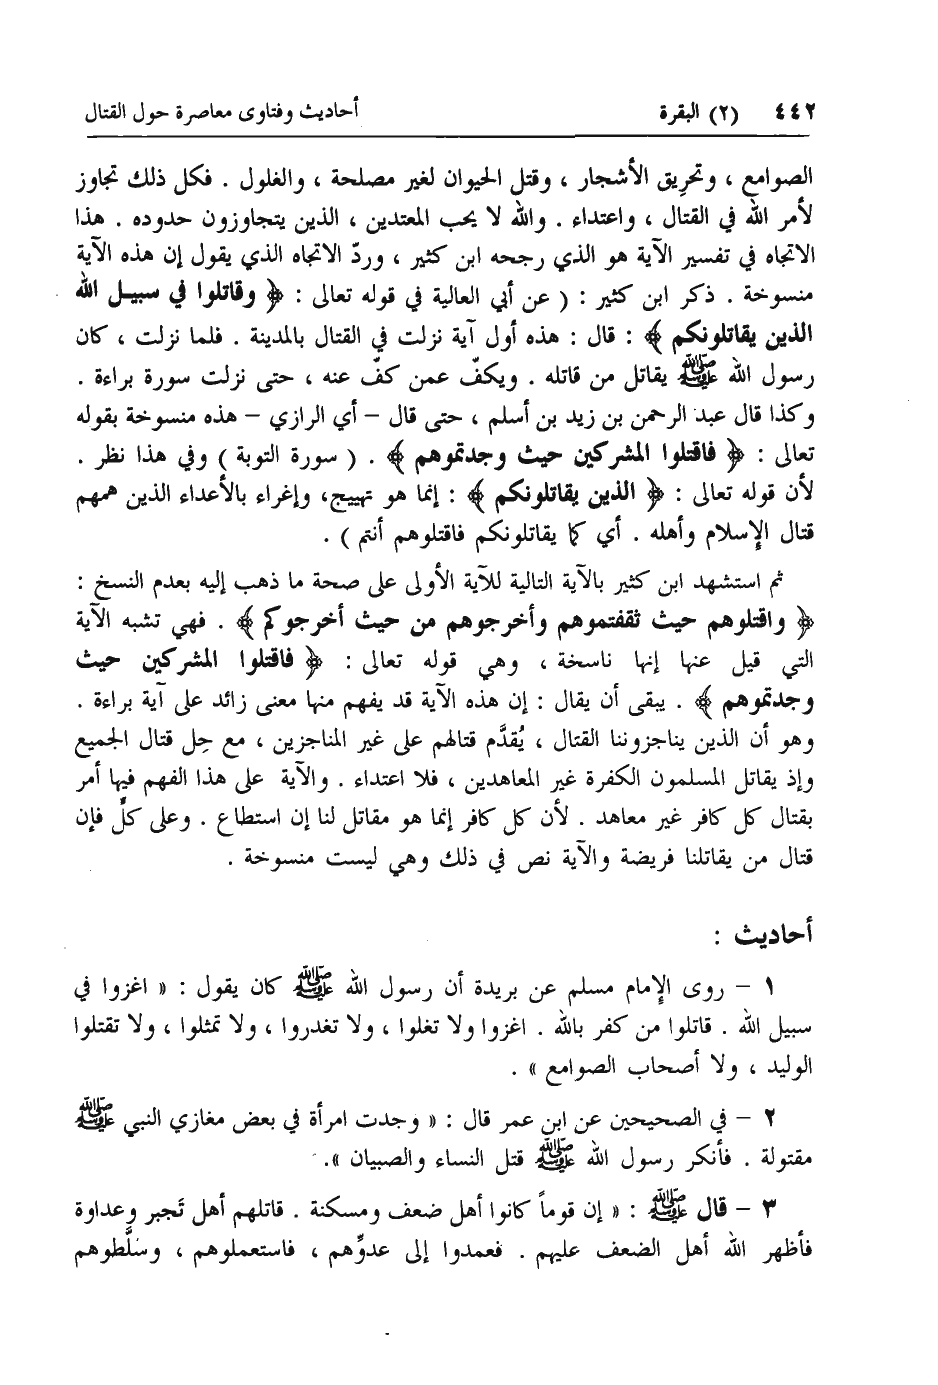 ٤٤٢ (٢) البقرة أحاديث وفتاوى معاصرة حول القتال
الصوامع ، وتحرِيق الأشجار ، وقتل الحيوان لغير مصلحة ، والغلول . فكل ذلك تجاوز
لأمر الله في القتال ، واعتداء . والله لا يحب المعتدين ، الذين يتجاوزون حدوده . هذا
الاتجاه في تفسير الآية هو الذي رجحه ابن كثير ، وردّ الاتجاه الذي يقول إن هذه الآية
منسوخة . ذكر ابن كثير : ( عن أبي العالية في قوله تعالى : ﴿ وقاتلوا في سبيـل الله
الذين يقاتلونكم ﴾ : قال : هذه أول آية نزلت في القتال بالمدينة . فلما نزلت ، كان
رسول الله ﷺ يقاتل من قاتله . ويكفّ عمن كفّ عنه ، حتى نزلت سورة براءة .
وكذا قال عبد الرحمن بن زيد بن أسلم ، حتى قال – أي الرازي – هذه منسوخة بقوله
تعالى : ﴿ فاقتلوا المشركين حيث وجدتموهم ﴾ . ( سورة التوبة ) وفي هذا نظر .
لأن قوله تعالى : ﴿ الذين يقاتلونكم ﴾ : إنما هو تهييج، وإغراء بالأعداء الذين همهم
قتال الإسلام وأهله . أي كما يقاتلونكم فاقتلوهم أنتم ) .
ثم استشهد ابن كثير بالآية التالية للآية الأولى على صحة ما ذهب إليه بعدم النسخ :
﴿ واقتلوهم حيث ثقفتموهم وأخرجوهم من حيث أخرجوكم ﴾ . فهي تشبه الآية
التي قيل عنها إنها ناسخة ، وهي قوله تعالى : ﴿ فاقتلوا المشركين حيث
وجدتموهم ﴾ . يبقى أن يقال : إن هذه الآية قد يفهم منها معنى زائد على آية براءة .
وهو أن الذين يناجزوننا القتال ، يُقدَّم قتالهم على غير المناجزين ، مع حِل قتال الجميع
وإذ يقاتل المسلمون الكفرة غير المعاهدين ، فلا اعتداء . والآية على هذا الفهم فيها أمر
بقتال كل كافر غير معاهد . لأن كل كافر إنما هو مقاتل لنا إن استطاع . وعلى كلٍّ فإن
قتال من يقاتلنا فريضة والآية نص في ذلك وهي ليست منسوخة .
أحاديث :
١ – روى الإمام مسلم عن بريدة أن رسول الله ﷺ كان يقول : « اغزوا في
سبيل الله . قاتلوا من كفر بالله . اغزوا ولا تغلوا ، ولا تغدروا ، ولا تمثلوا ، ولا تقتلوا
الوليد ، ولا أصحاب الصوامع » .
٢ – في الصحيحين عن ابن عمر قال : « وجدت امرأة في بعض مغازي النبي ﷺ
مقتولة . فأنكر رسول الله ﷺ قتل النساء والصبيان ».
٣ – قال ﷺ : « إن قوماً كانوا أهل ضعف ومسكنة . قاتلهم أهل تَجبر وعداوة
فأظهر الله أهل الضعف عليهم . فعمدوا إلى عدوِّهم ، فاستعملوهم ، وسَلَّطوهم